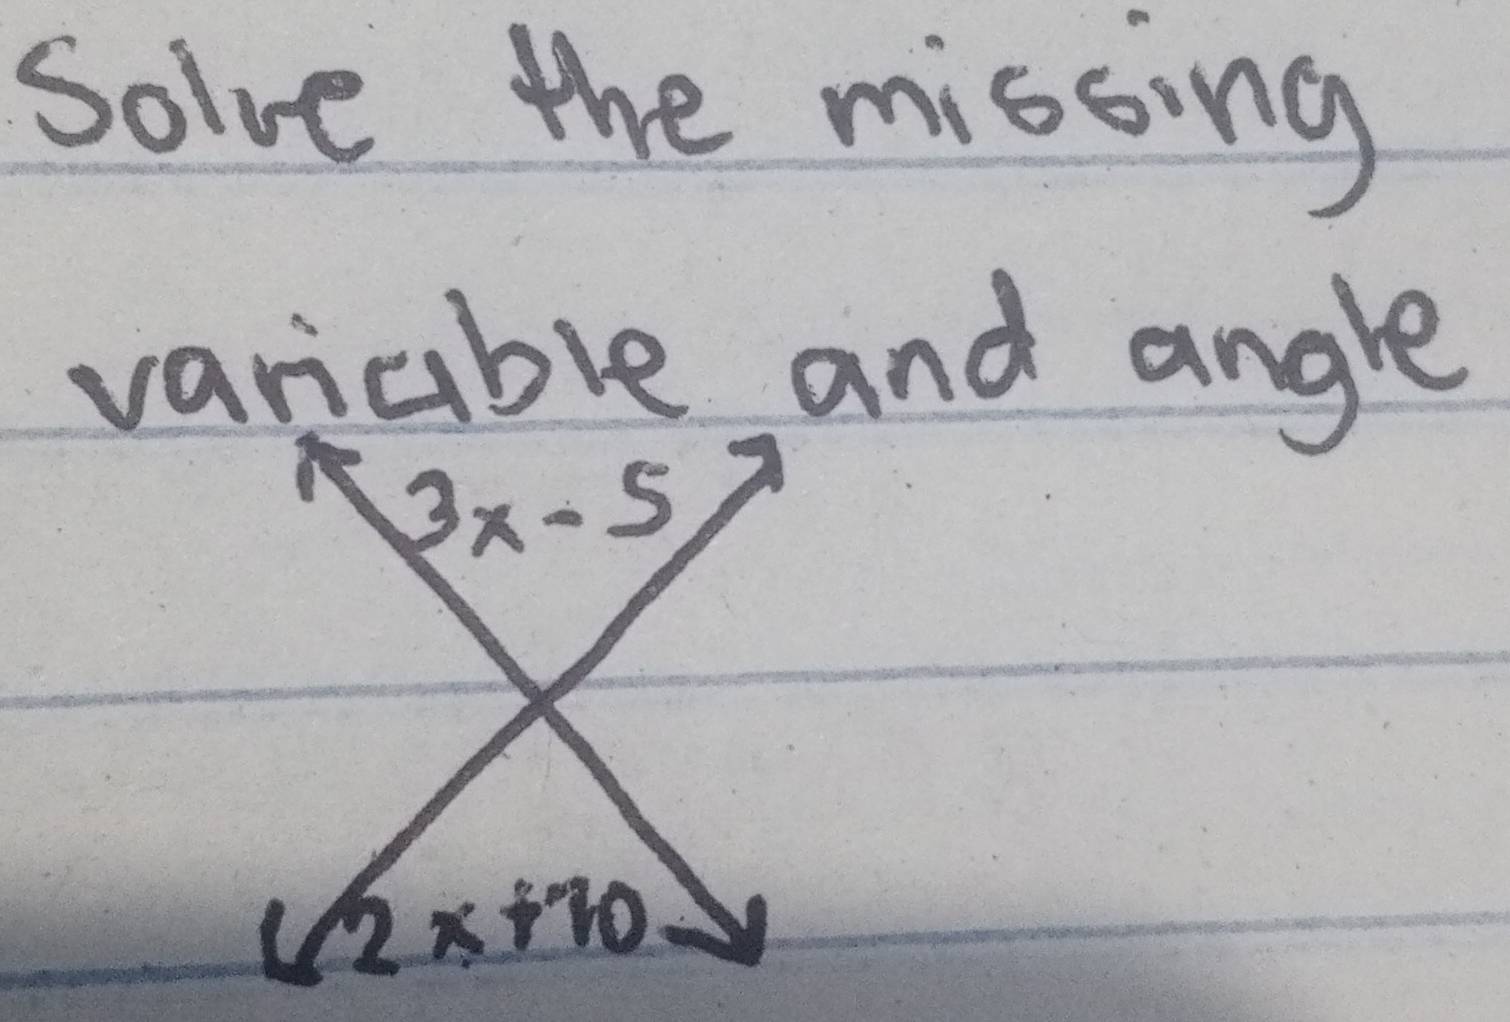 Solve the missing
variable and angle
3x - 5
2x + 10